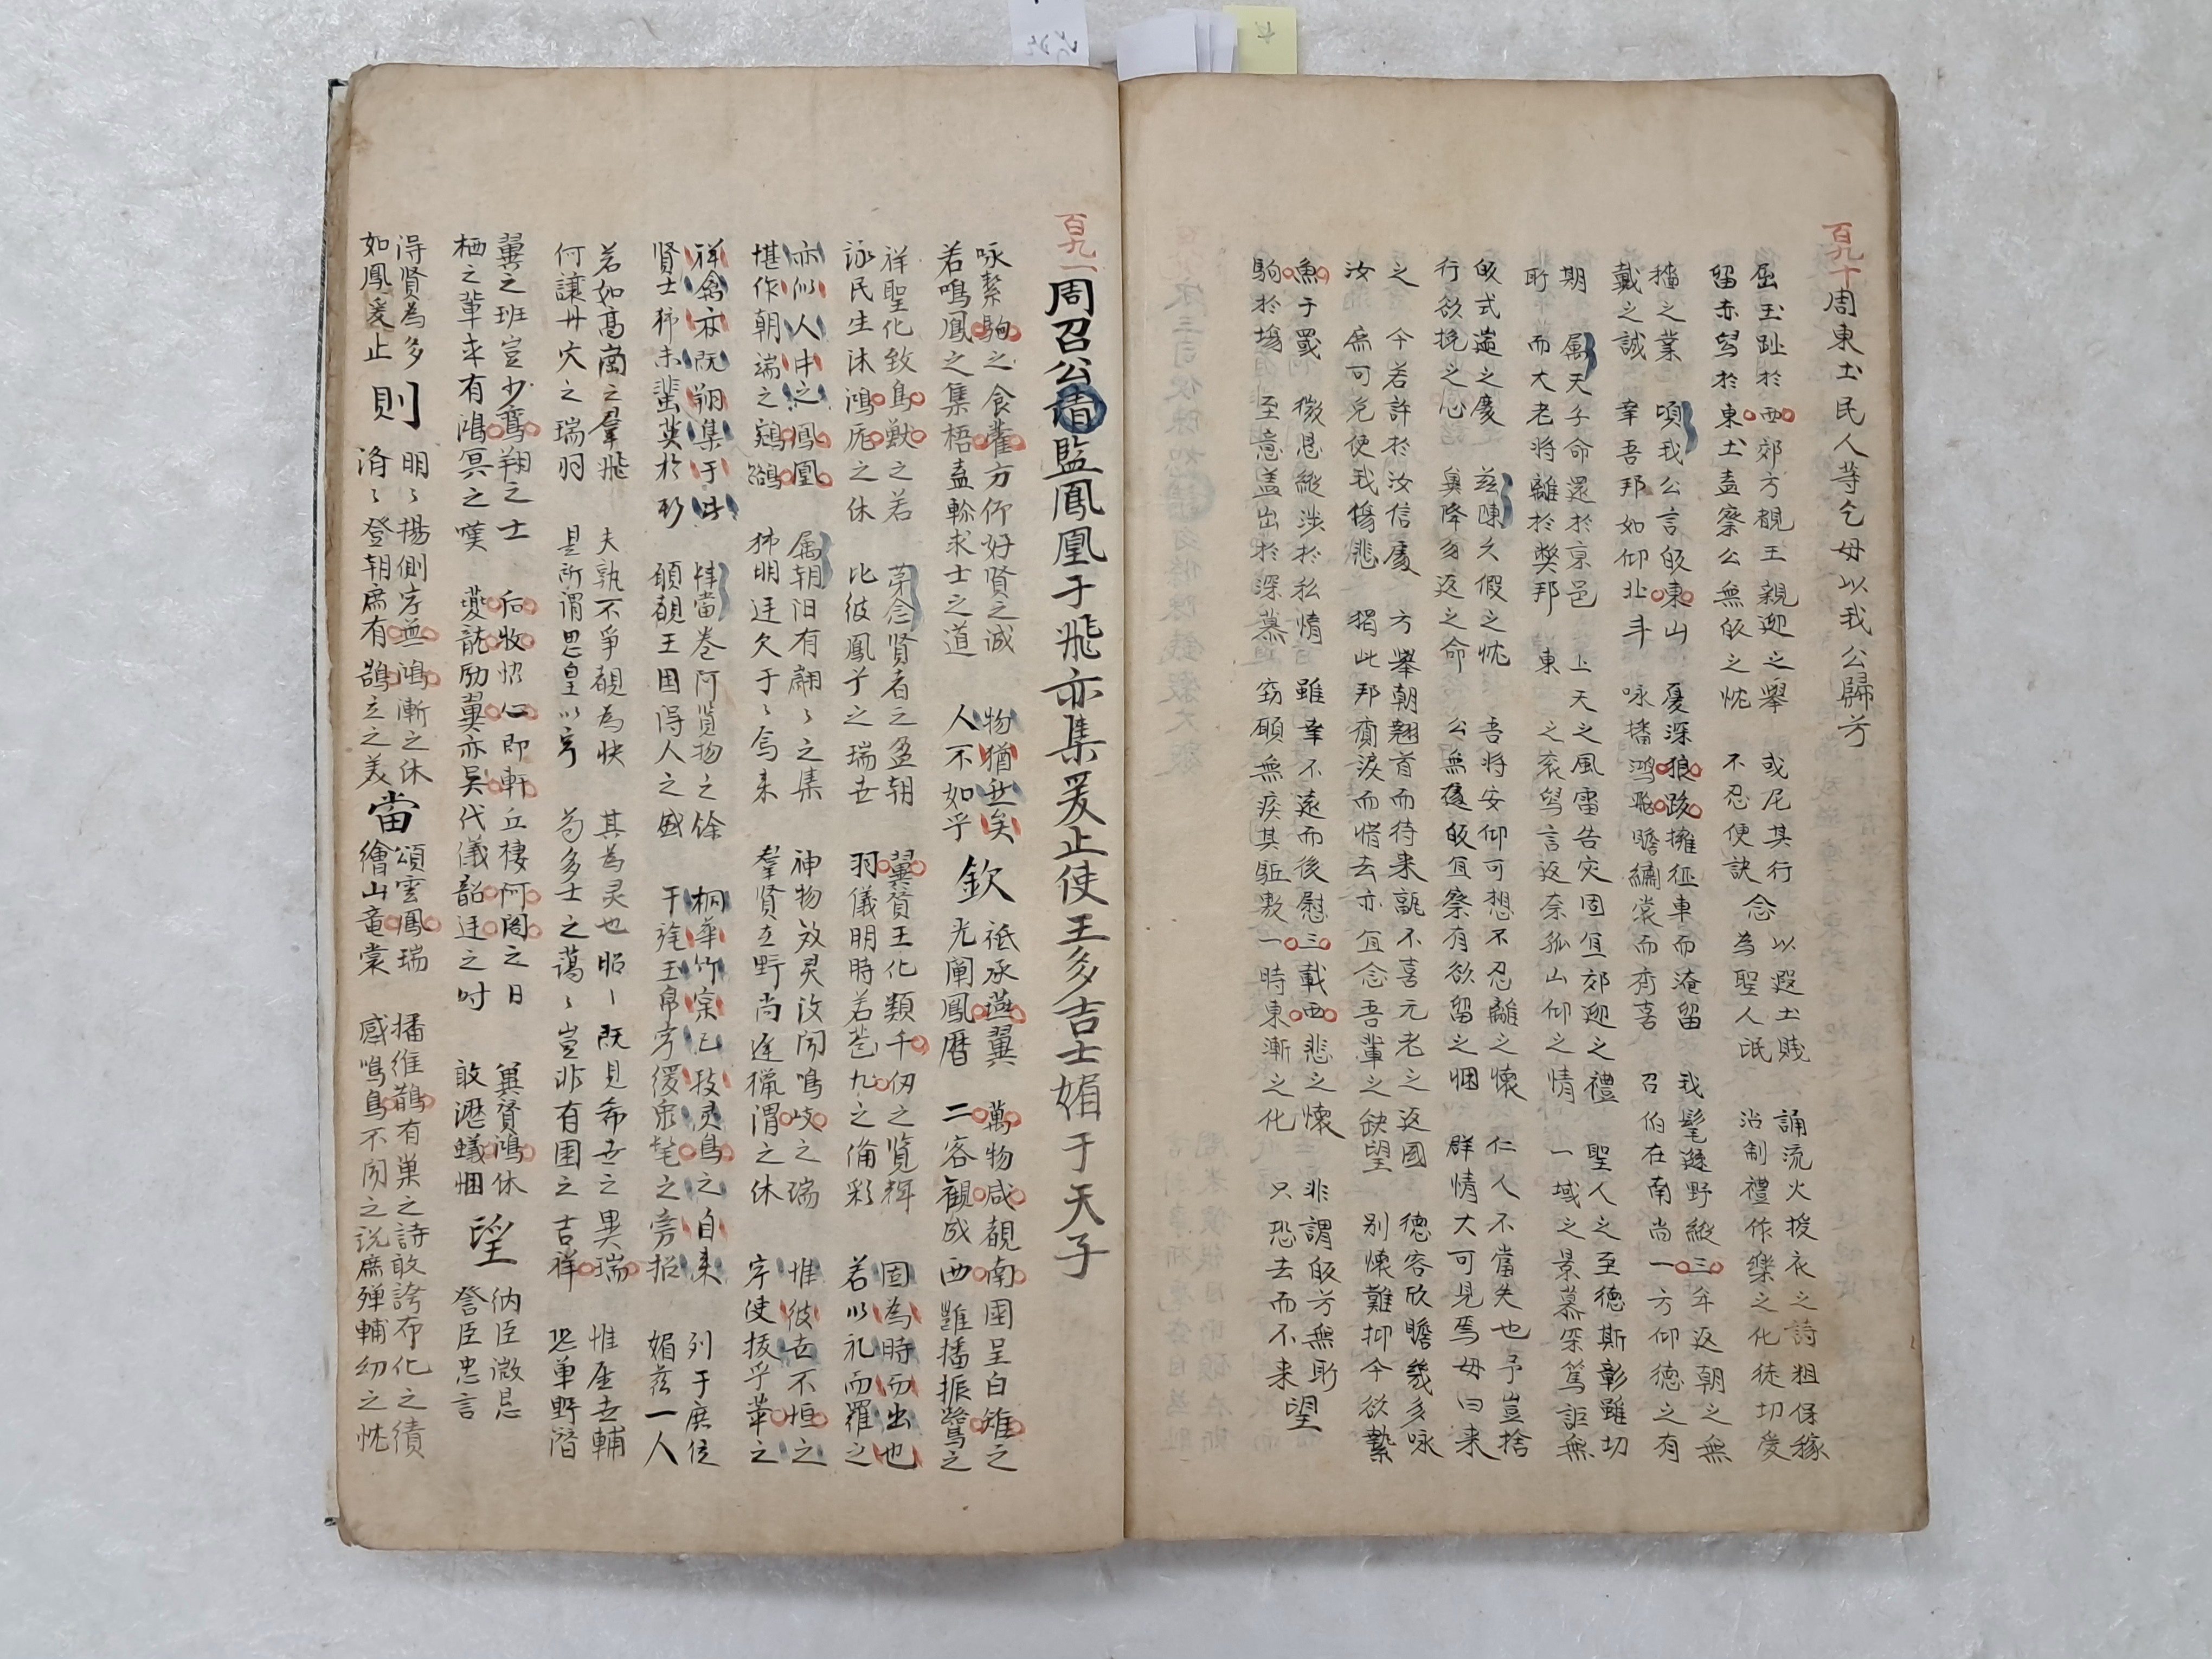 百九十 周東土民人等乞毋以我公歸兮
屈玉趾於西郊方覩王親迎之舉 或尼其行 念以遐土賤 誦流火授衣之詩粗保稼
留赤舄於東土盍察公無皈之忱 不忍便訣 為聖人氓 沾制禮作樂之化徒切愛
穡之業 頃我公言皈東山 憂深狼跋擁征車而淹留 我髦遜野縱三年返朝之無
戴之誠 幸吾邦如仰北斗 咏播鴻飛瞻繡裳而齊喜 召伯在南尚一方仰德之有
期 属天子命還於京邑 上天之風雷告灾固宜郊迎之禮 聖人之至德斯彰雖切
耿 而大老将離於獘邦 東之衮舄言返奈孤山仰之情 一域之景慕深篤詎無
皈式遄之慶 兹陳久假之忱 吾将安仰可想不忍離之懷 仁人不當失也予豈捨
行欲挽之心 冀降勿返之命 公無遽皈宜察有欲留之悃 群情大可見焉毋曰来
之 今若許於汝信處 方擧朝翹首而待来詎不喜元老之返國 德容欣瞻幾多咏
汝 庶可免使我傷悲 獨此邦殞淚而惜去亦宜念吾輩之缺望 别懷難抑今欲縶
魚于罭 微恳縱涉於私情 雖幸不遠而後慰三載西悲之懷 非謂皈兮無耿
駒於場 至意盖出於深慕 窃願無疾其駈敷一時東漸之化 只恐去而不来 望
百九一 周召公請監鳳凰于飛亦集爰止使王多吉士媚于天子
咏縶駒之食藿方仰好賢之誠 物猶無矣 欽 祗承燕翼 萬物咸覩南國呈白雉之
若鳴鳳之集梧盍軫求士之道 人不如乎 光闡鳳曆 二客観成西雝播振鷺之
祥聖化致鳥獣之若 茅念賢者之盈朝 翼賛王化類千仞之覧輝 固為時而出也
詠民生沐鴻厖之休 比彼鳳予之瑞世 羽儀明時若苞九之倫彩 若以礼而羅之
亦似人中之鳳凰 属朝阳有翽〻之集 神物效灵汝聞鳴岐之瑞 惟彼世不恒之
堪作朝端之鵷鶵 犻明廷欠于〻舄来 羣賢在野尚遅猟渭之休 字使拔乎萃之
祥禽亦既翔集于此 情當巻阿賛物之馀 桐華竹宗已技灵鳥之自来 列于庶位
賢士犻未蜚英於彤 頋覩王国得人之盛 干旄玉帛字缓泉髦之旁招 媚兹一人
若如高崗之羣飛 夫孰不爭覩為快 其為灵也昭〻既見希世之異瑞 惟应世輔
何讓丹穴之瑞羽 是所謂思皇以寧 苟多士之藹〻豈非有国之吉祥 恐单野潛
翼之班豈少鸞翔之士 后收怊心即軒丘棲阿閣之日 冀賛鴻休 納臣微恳
栖之輩幸有鴻冥之嘆 夔龍励翼亦吴代儀韶廷之时 敢瀝蟻悃 望 詧臣忠言
得賢為多 則 明〻揚側字並鴻漸之休 當 頌雲鳳瑞 播维鵲有巢之詩敢誇布化之績
如鳳爰止 済〻登朝庶有鵠立之美 繪山竜裳 感鳴鳥不闻之説庶殫輔幼之忱